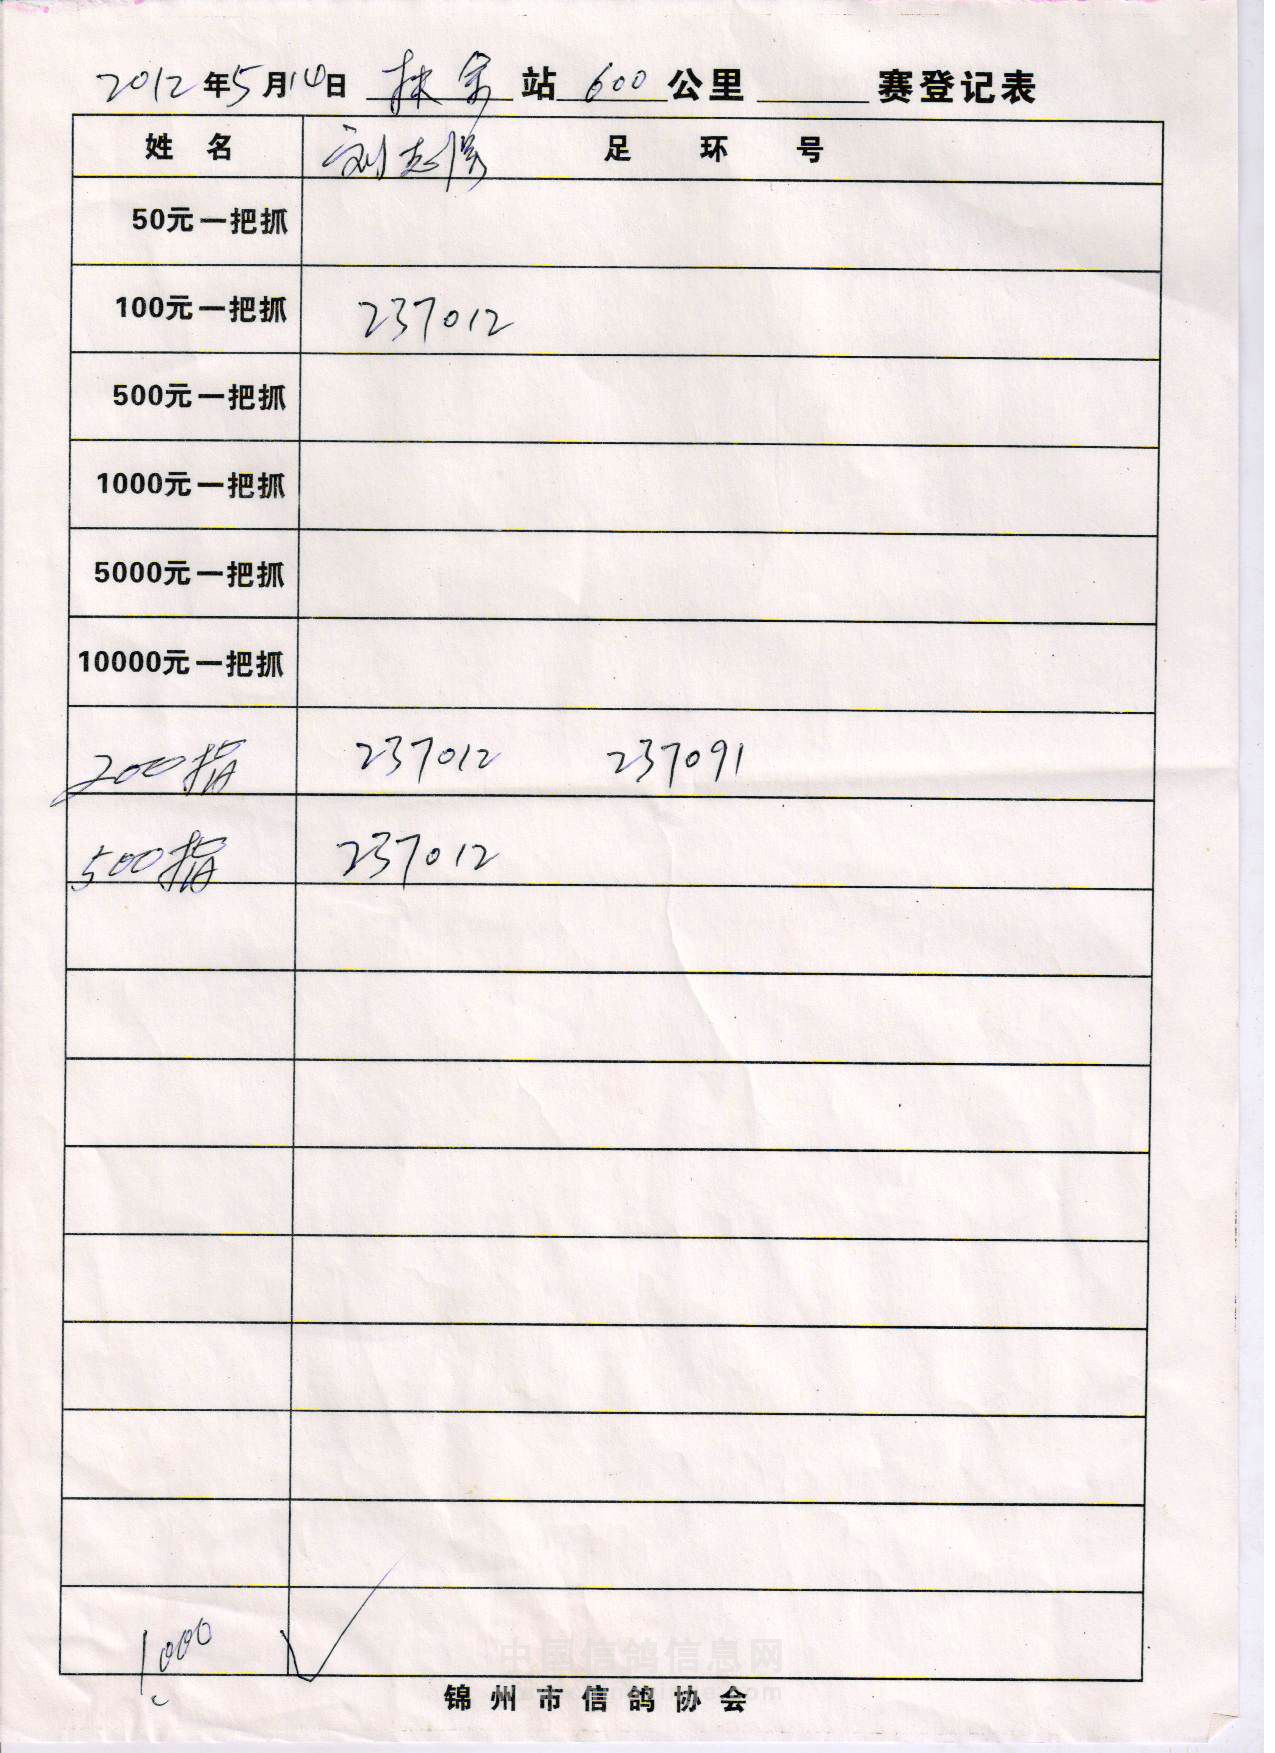 2012年5月14日 扶余 站 600 公里 赛登记表
姓名 刘志强 足环号
50元一把抓
100元一把抓 237012
500元一把抓
1000元一把抓
5000元一把抓
10000元一把抓
200指 237012 237091
500指 237012
1000 √
中国信鸽信息网
锦州市信鸽协会